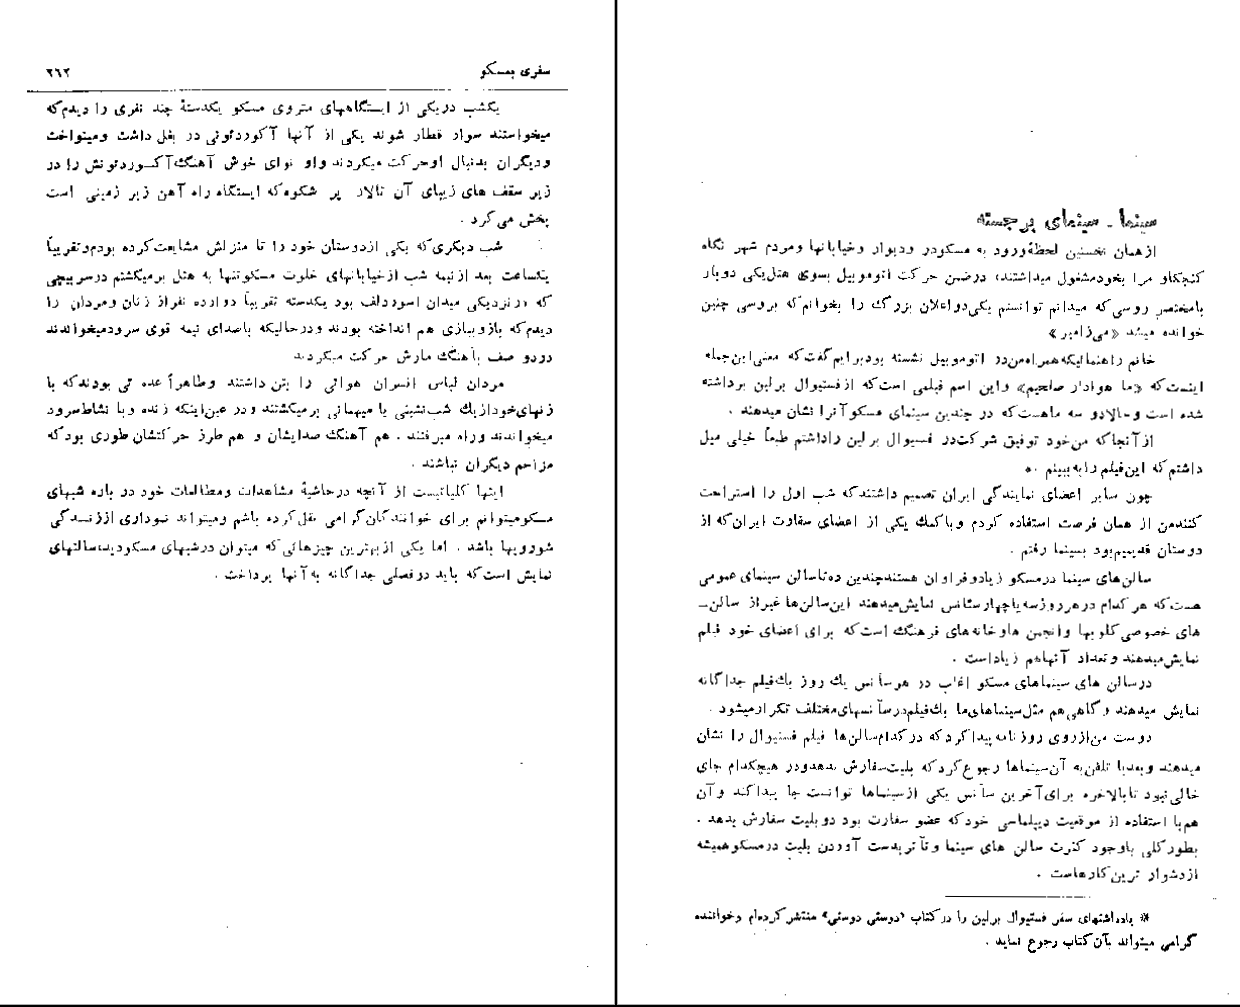 سفری بمسکو ۲۶۲
یکشب در یکی از ایستگاههای متروی مسکو یکدستهٔ چند نفری را دیدم که
میخواستند سوار قطار شوند یکی از آنها آکوردئونی در بغل داشت و مینواخت
و دیگران بدنبال او حرکت میکردند و او نوای خوش آهنگ آکوردئونش را در
زیر سقف های زیبای آن تالار پر شکوه که ایستگاه راه آهن زیر زمینی است
پخش می کرد .
شب دیگری که یکی از دوستان خود را تا منزلش مشایعت کرده بودم و تقریباً
یکساعت بعد از نیمه شب از خیابانهای خلوت مسکو تنها به هتل برمیگشتم در سر پیچی
که در نزدیکی میدان اسوردلف بود یکدسته تقریباً دوازده نفر از زنان و مردان را
دیدم که بازو ببازی هم انداخته بودند و در حالیکه با صدای نیمه قوی سرود میخواندند
در دو صف بآهنگ مارش حرکت میکردند
مردان لباس افسران هوائی را بتن داشتند و ظاهراً عده ئی بودند که با
زنهای خود از یك شب نشینی یا میهمانی برمیگشتند و در عین اینکه زنده و با نشاط سرود
میخواندند و راه میرفتند . هم آهنگ صدایشان و هم طرز حرکتشان طوری بود که
مزاحم دیگران نباشند .
اینها کلیاتیست از آنچه در حاشیهٔ مشاهدات و مطالعات خود در باره شبهای
مسکو میتوانم برای خوانندگان گرامی نقل کرده باشم و میتواند نموداری از زندگی
شورویها باشد . اما یکی از بهترین چیزهائی که میتوان در شبهای مسکو دید، سالنهای
نمایش است که باید در فصلی جداگانه به آنها پرداخت .
سینما ـ سینمای برجسته
از همان نخستین لحظهٔ ورود به مسکو در و دیوار و خیابانها و مردم شهر نگاه
کنجکاو مرا بخود مشغول میداشتند، در ضمن حرکت اتوموبیل بسوی هتل یکی دو بار
با مختصر روسی که میدانم توانستم یکی دو اعلان بزرگ را بخوانم که بروسی چنین
خوانده میشد «می زامیر»
خانم راهنما ئیکه همراه من در اتوموبیل نشسته بود برایم گفت که معنی این جمله
اینست که «ما هوادار صلحیم» و این اسم فیلمی است که از فستیوال برلین برداشته
شده است و حالا دو سه ماهست که در چندین سینمای مسکو آنرا نشان میدهند .
از آنجا که من خود توفیق شرکت در فستیوال برلین را داشتم طبعاً خیلی میل
داشتم که این فیلم را به بینم .*
چون سایر اعضای نمایندگی ایران تصمیم داشتند که شب اول را استراحت
کنند من از همان فرصت استفاده کردم و با کمك یکی از اعضای سفارت ایران که از
دوستان قدیمیم بود بسینما رفتم .
سالن های سینما در مسکو زیاد و فراوان هستند چندین ده تا سالن سینمای عمومی
هست که هر کدام در هر روز سه یا چهار سئانس نمایش میدهند این سالن ها غیر از سالن ـ
های خصوصی کلوبها و انجمن ها و خانه های فرهنگ است که برای اعضای خود فیلم
نمایش میدهند و تعداد آنها هم زیاد است .
در سالن های سینماهای مسکو اغلب در هر سآنس یك روز یك فیلم جداگانه
نمایش میدهند و گاهی هم مثل سینماهای ما یك فیلم در سآنسهای مختلف تکرار میشود .
دوست من از روی روزنامه پیدا کرد که در کدام سالن ها فیلم فستیوال را نشان
میدهند و بعد با تلفن به آن سینماها رجوع کرد که بلیت سفارش بدهد و در هیچکدام جای
خالی نبود تا بالاخره برای آخرین سآنس یکی از سینماها توانست جا پیدا کند و آن
هم با استفاده از موقعیت دیپلماسی خود که عضو سفارت بود دو بلیت سفارش بدهد .
بطور کلی با وجود کثرت سالن های سینما و تآتر بدست آوردن بلیت در مسکو همیشه
از دشوار ترین کارهاست .
* یادداشتهای سفر فستیوال برلین را در کتاب «دوستی دوستی» منتشر کرده ام و خواننده
گرامی میتواند بآن کتاب رجوع نماید .